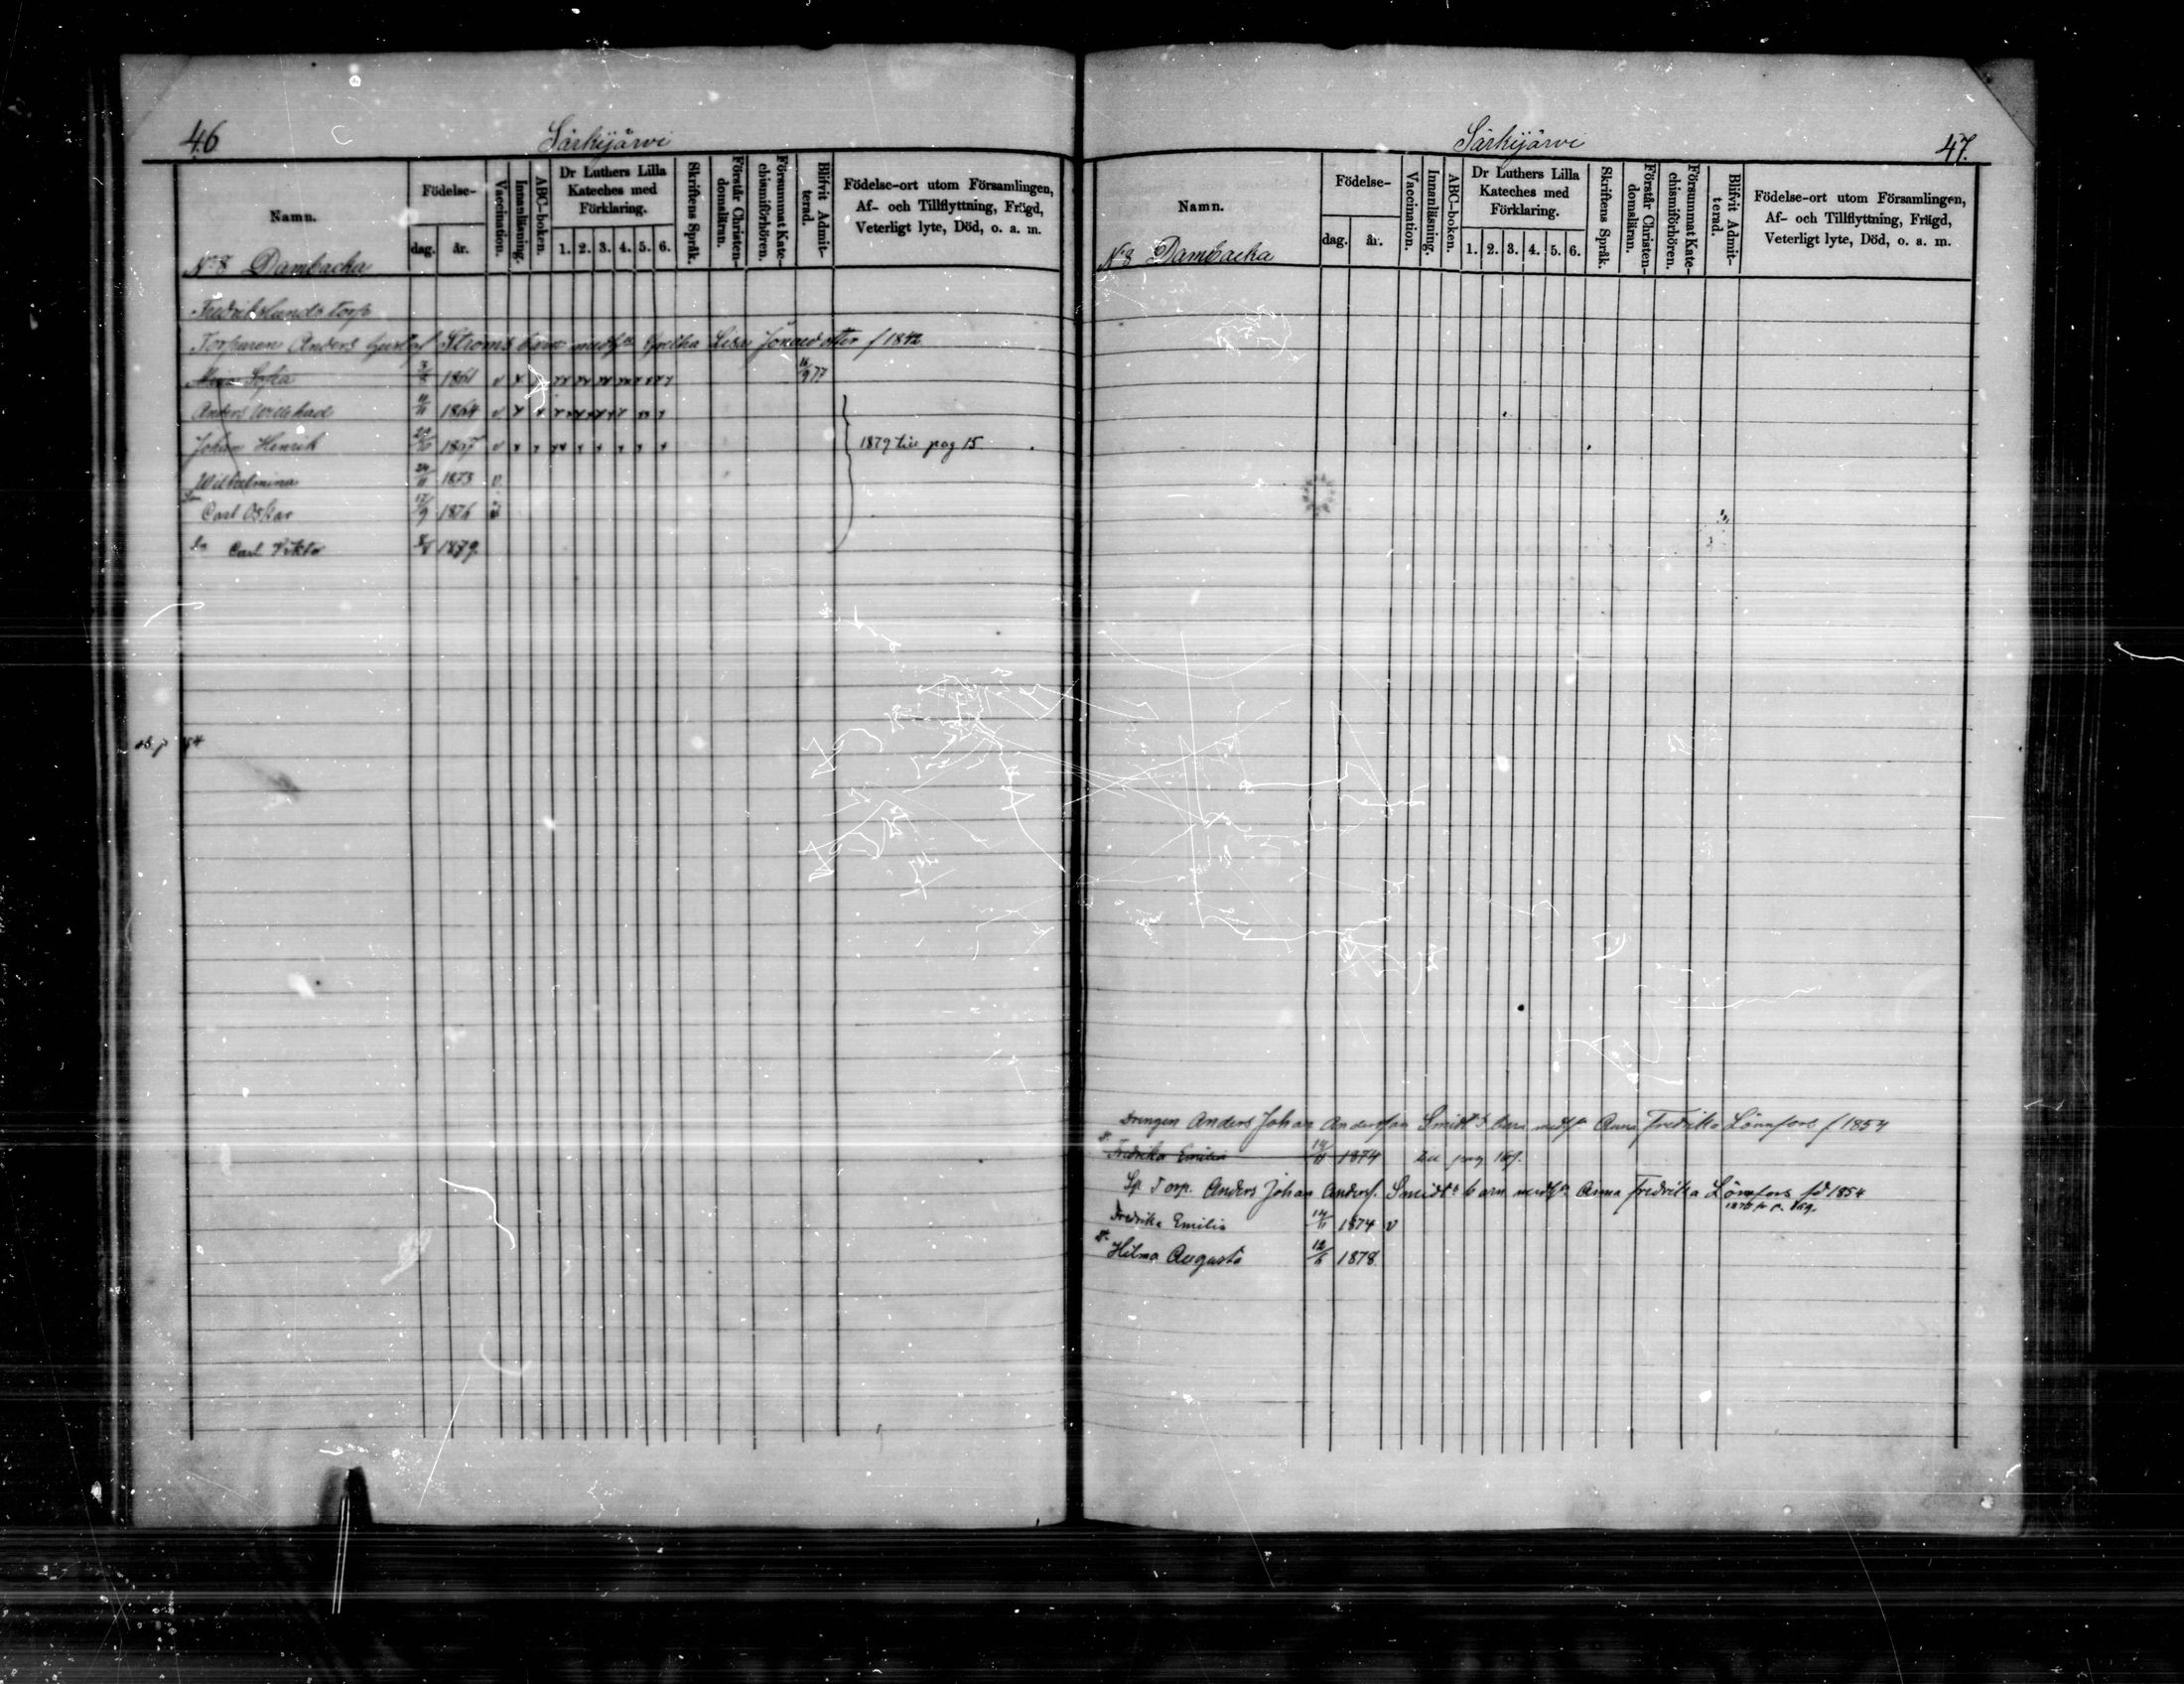 46
Särkijärvi
Namn.
Födelse-
dag.
år.
Vaccination.
Innanläsning.
ABC-boken.
Dr Luthers Lilla
Kateches med
Förklaring.
1. 2. 3. 4. 5. 6.
Skriftens Språk.
Förstår Christen-
domsläran.
Försummat Kate-
chismiförhören.
Blifvit Admit-
terad.
Födelse-ort utom Församlingen,
Af- och Tillflyttning, Frägd,
Veterligt lyte, Död, o. a. m.
No 8 Dambacka
Fredrikslunds torp
Torparen Anders Gustaf Ströms barn med h. Gretha Lisa f 1842
Sofia 1861
Anders 11/11 1864
Johan Henrik 1879 till pag 15
Wilhelmina 24/11 1873 v
Carl Oskar 17/9 1876
Carl Viktor 1879
Särkijärvi
47.
Namn.
Födelse-
dag.
år.
Vaccination.
Innanläsning.
ABC-boken.
Dr Luthers Lilla
Kateches med
Förklaring.
1. 2. 3. 4. 5. 6.
Skriftens Språk.
Förstår Christen-
domsläran.
Försummat Kate-
chismiförhören.
Blifvit Admit-
terad.
Födelse-ort utom Församlingen,
Af- och Tillflyttning, Frägd,
Veterligt lyte, Död, o. a. m.
No 8 Dambacka
Drengen Anders Johan Andersson Smidts barn med h. Anna Fredrika Lönnfors f 1854
Fredrika Emilia 14/11 1874 till pag
Sp. Torp. Anders Johan Anders. Smidts barn med h. Anna Fredrika Lönnfors fd 1854
Fredrika Emilia 14/11 1874 v
Hilma Augusta 12/6 1878